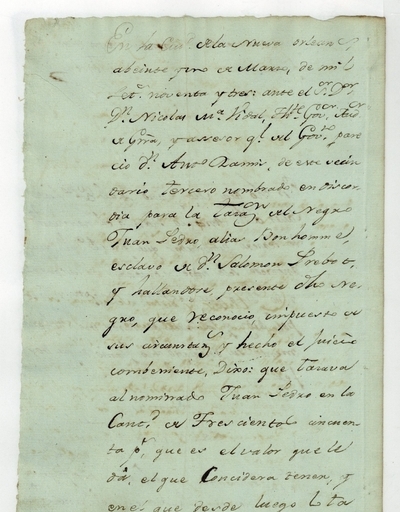 En la Ciud. de la Nueva orleans
abeinte y uno de Marzo, de mil
Set.s noventa y tres: ante el S.or D.or
D.n Nicolas M.a Vidal, Th.te Gov.or, Aud.
de Grra, y assesor g.l del Gov.no, pare
cio d.n Ant.o Ramis, de este vecin
dario tercero nombrado en Discor
dia, para la Tasaz.on del Negro
Juan Pedro alias Bonhomme l,
esclavo de d.n Salomon Prebot,
y hallandose, presente dho Ne
gro, que reconocio, impuesto de
sus circunstan.s y hecho el Juicio
combeniente, Dixo: que Tasava
al nominado Juan Pedro en la
Cant.d de Trescientos cincuen
ta p.s, que es el valor que le
dá, el que Concidera tener, y
en el que desde luego lo ta